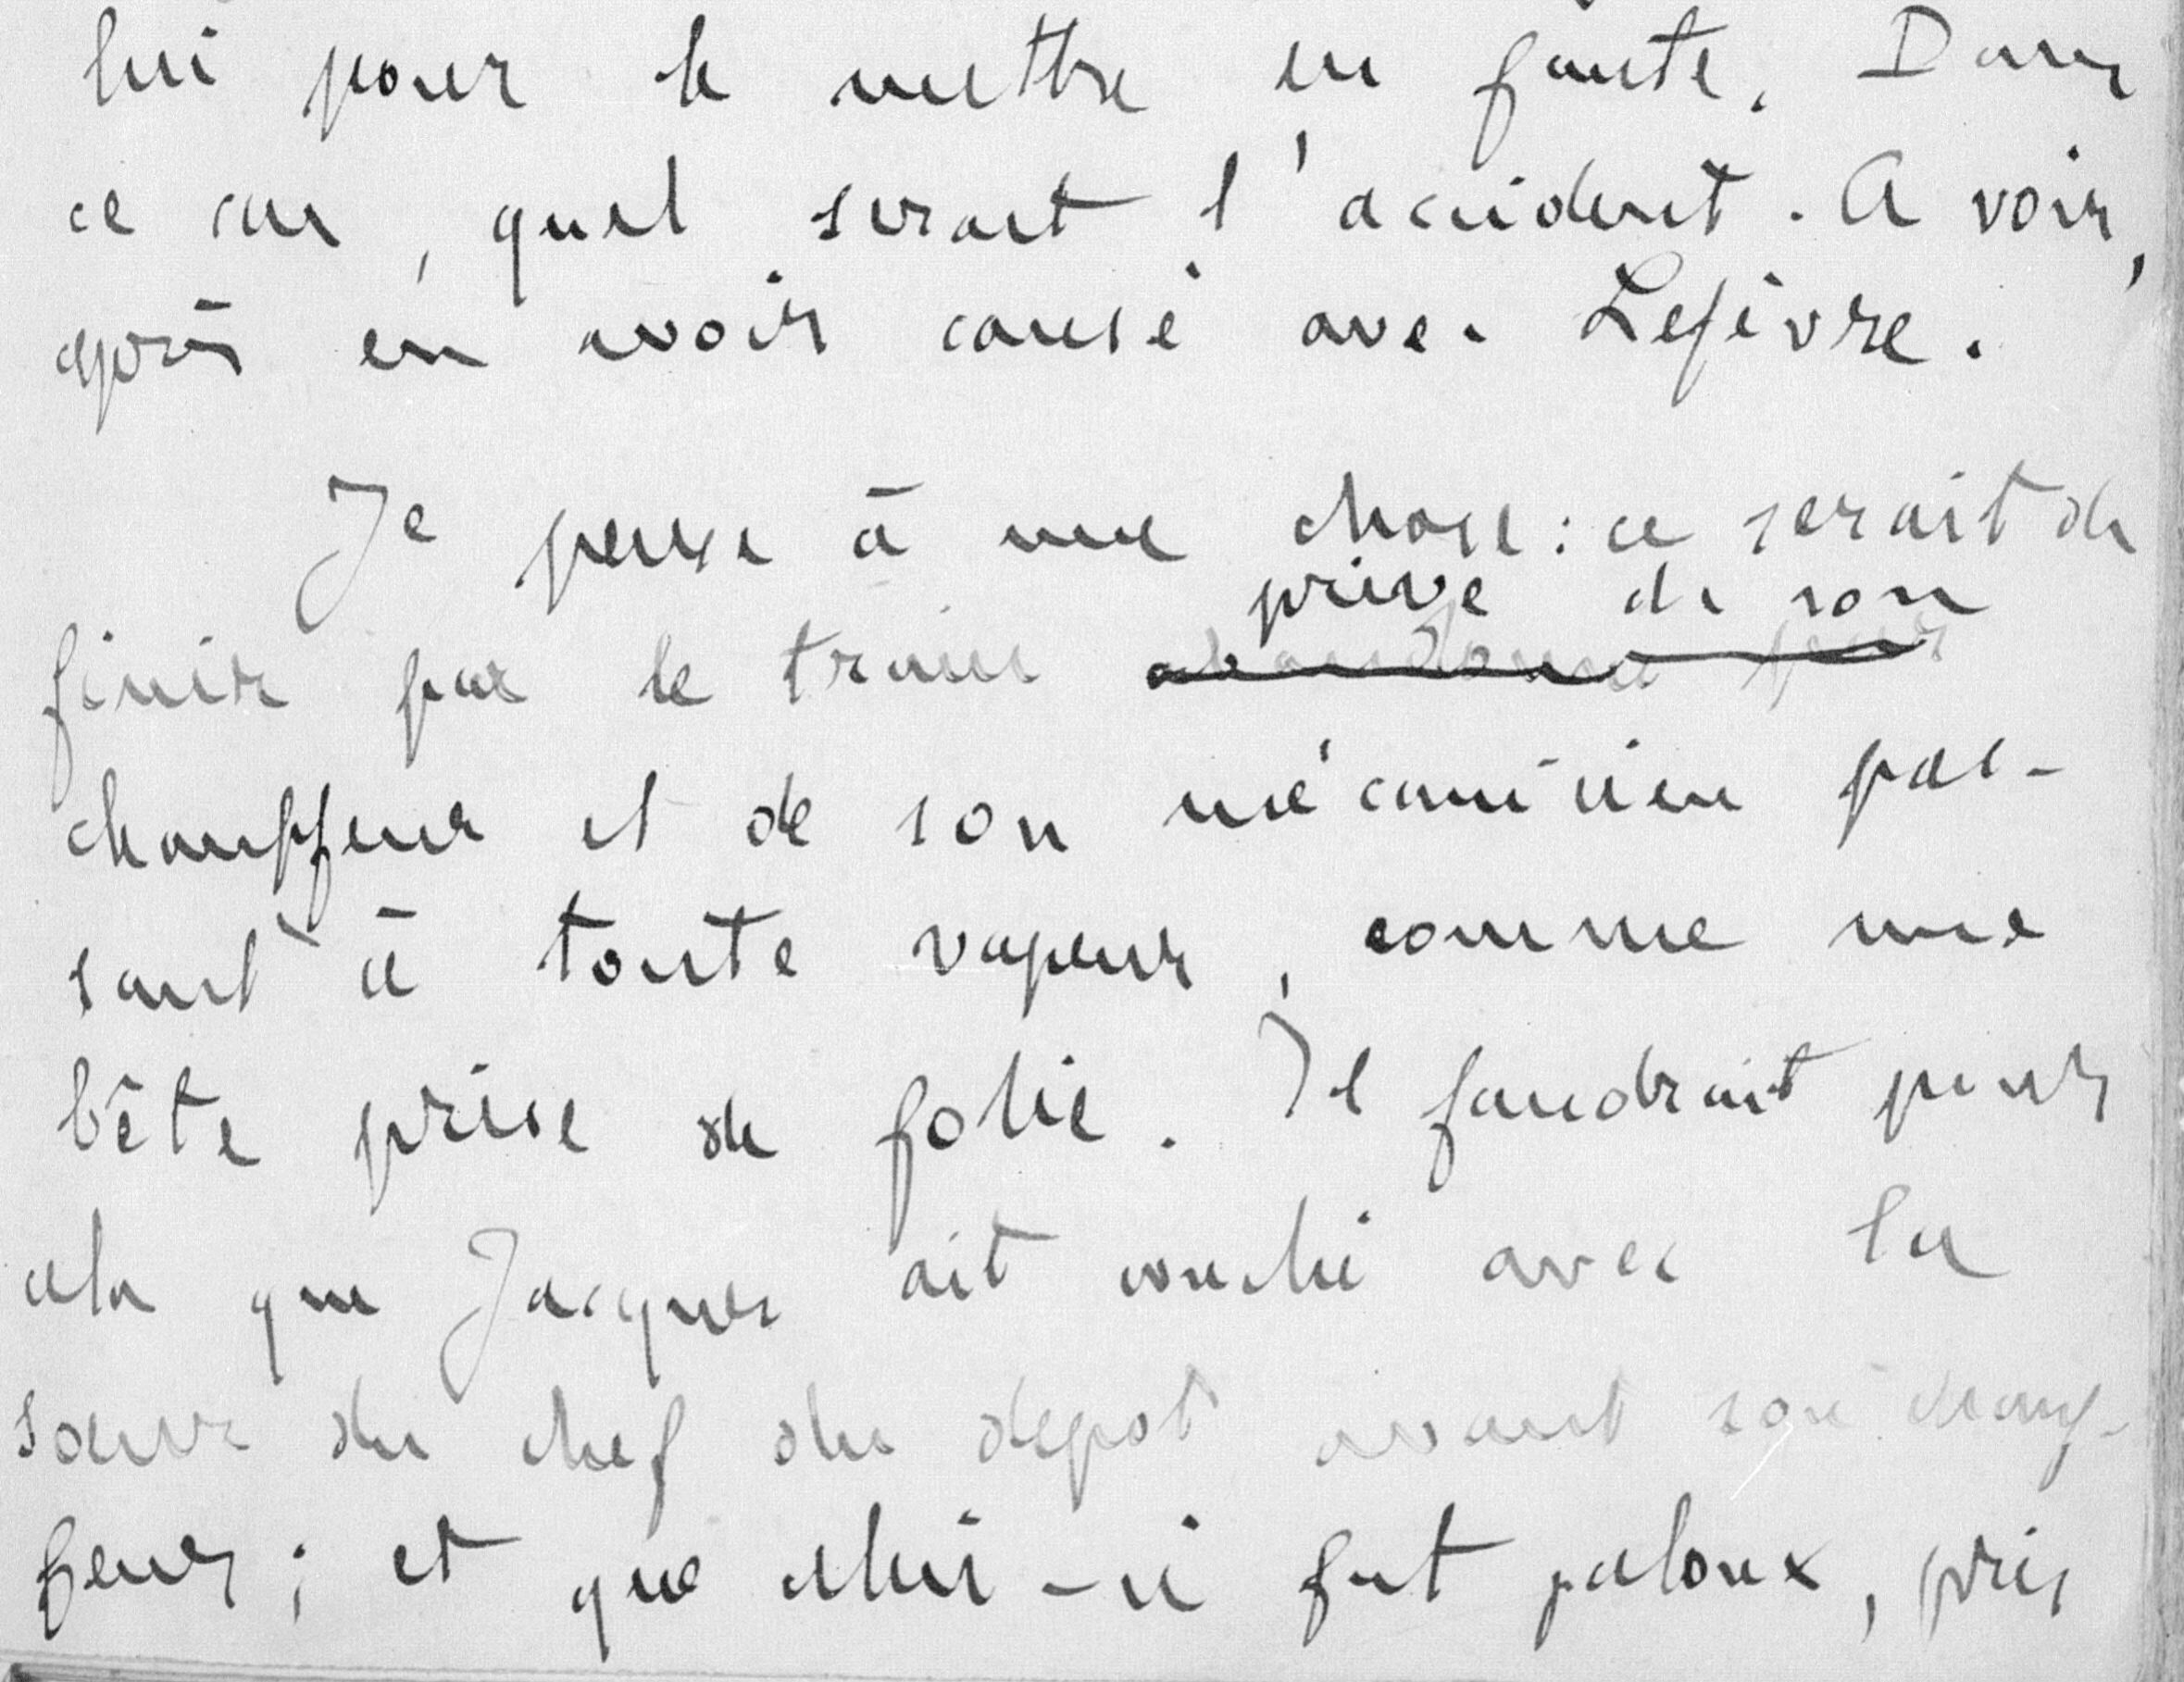 lui pour le mettre en faute. Dans
ce cas, quel serait l'accident. A voir,
après en avoir causé avec Lefèvre.
Je pense à une chose : ce serait de
privé de son
finir par le train abandonné par
chauffeur et de son mécanicien pas-
sant à toute vapeur, comme une
bête prise de folie. Il faudrait pour
cela que Jacques ait couché avec la
sœur du chef du dépot avant son chauf-
feur ; et que celui-ci fut jaloux, pris